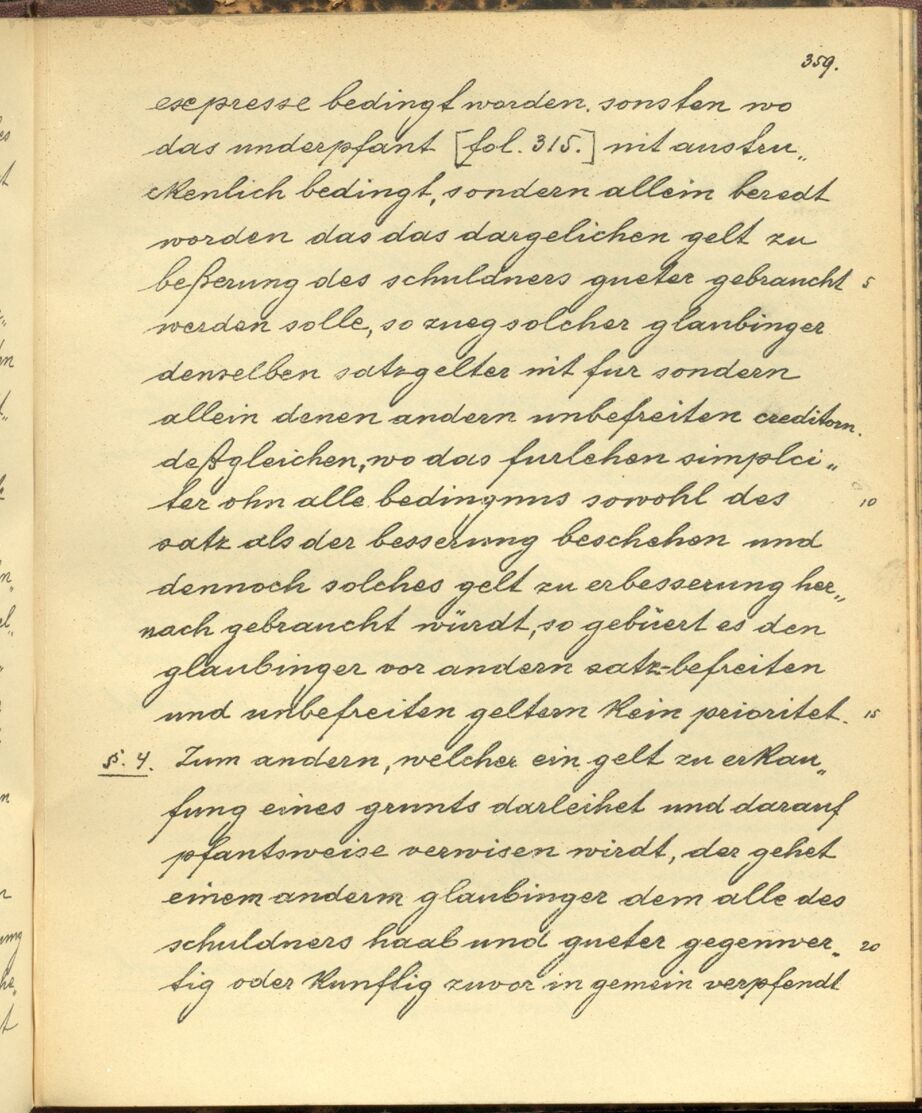 359.
expresse bedingt worden. sonsten wo
das underpfant [fol. 315.] nit austru„
ckenlich bedingt, sondern allein beredt
worden das das dargelichen gelt zu
beßerung des schuldners gueter gebraucht 5
werden solle, so zueg solcher glaubinger
denselben satzgelter nit fur sondern
allein denen andern unbefreiten creditorn.
deßgleichen, wo das furlehen simplci„
ter ohn alle bedingnus sowohl des 10
satz als der besserung beschehen und
dennoch solches gelt zu erbesserung her„
nach gebraucht würdt, so gebüert es den
glaubinger vor andern satz-befreiten
und unbefreiten geltern kein prioritet. 15
§. 4. Zum andern, welcher ein gelt zu erkau„
fung eines grunts darleihet und darauf
pfantsweise verwisen wirdt, der gehet
einem anderm glaubinger dem alle des
schuldners haab und gueter gegenwer„ 20
tig oder kunftig zuvor in gemein verpfendt